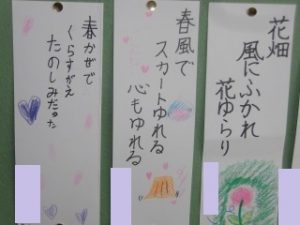 花畑
風にふかれ
花ゆらり
春風で
スカートゆれる
心もゆれる
春かぜで
くらすがえ
たのしみだった